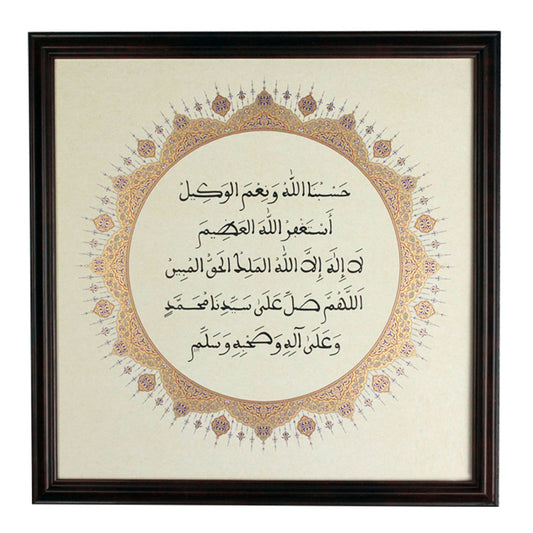 حَسْبُنَا اللّٰهُ وَنِعْمَ الوَكِيلْ
أَسْتَغْفِرُ اللّٰهَ العَظِيمَ
لَا إِلٰهَ إِلَّا اللّٰهُ المَلِكُ الحَقُّ المُبِينْ
اَللّٰهُمَّ صَلِّ عَلىٰ سَيِّدِنَا مُحَمَّدٍ
وَعَلىٰ آلِهِ وَصَحْبِهِ وَسَلِّمْ